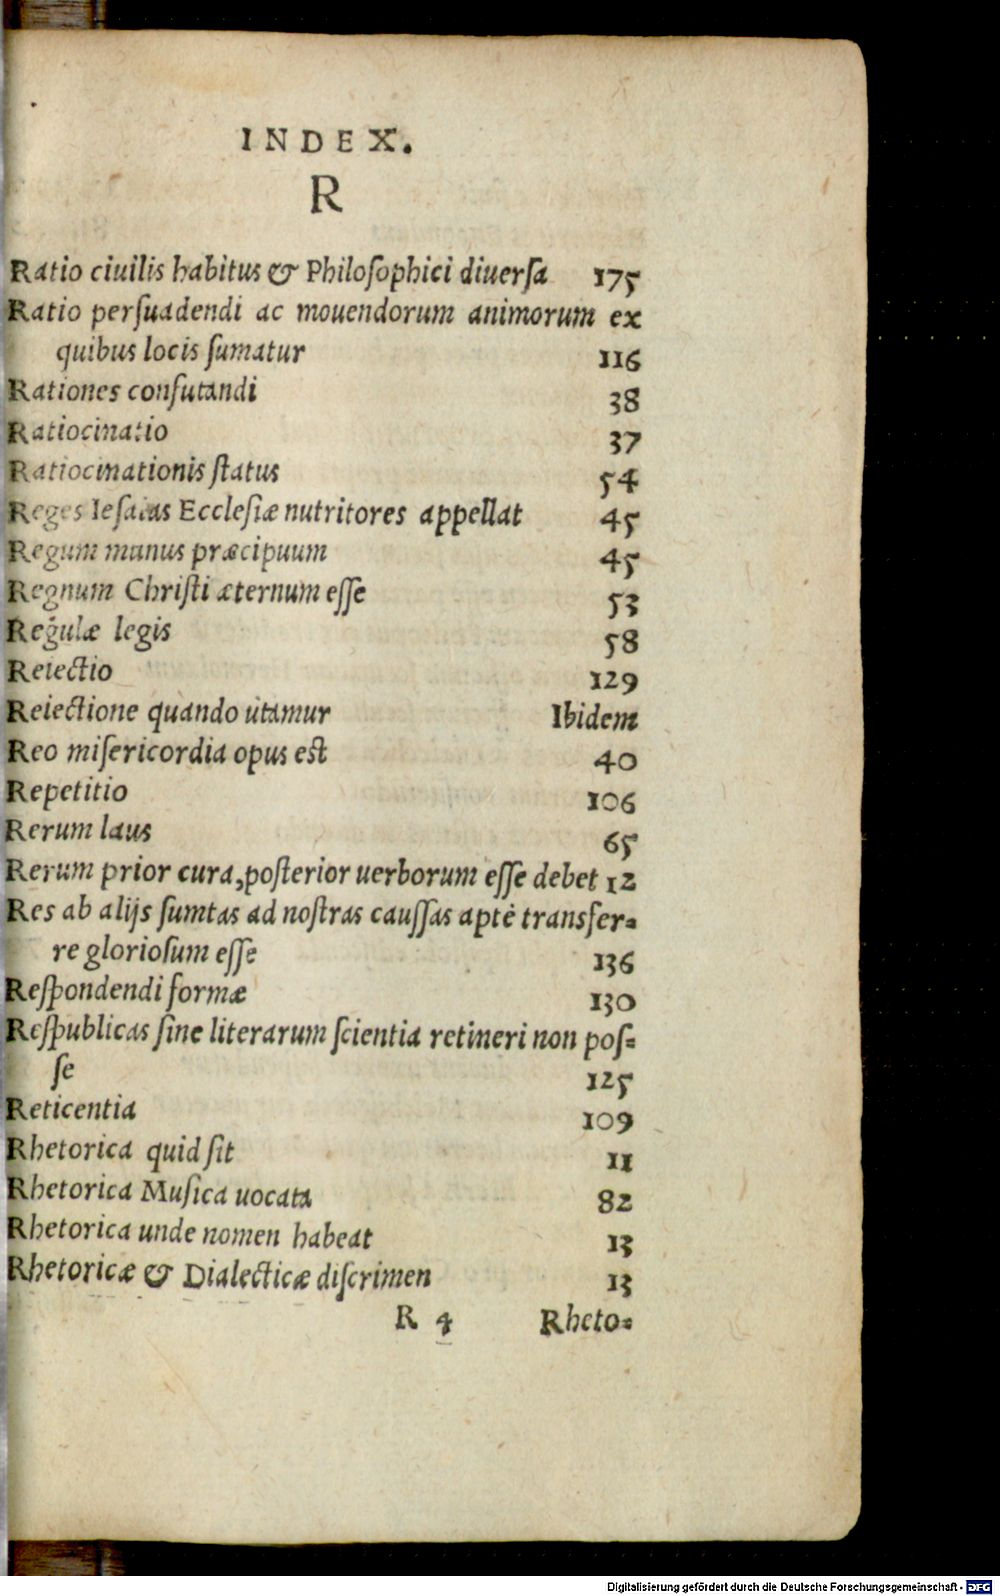 INDEX.
R
Ratio ciuilis habitus & Philoſophici diuerſa 175
Ratio perſuadendi ac mouendorum animorum ex
quibus locis ſumatur 116
Rationes confutandi 38
Ratiocinatio 37
Ratiocinationis ſtatus 54
Reges Ieſaias Eccleſiæ nutritores appellat 45
Regum munus præcipuum 45
Regnum Chriſti æternum eſſe 53
Regulæ legis 58
Reiectio 129
Reiectione quando utamur Ibidem
Reo miſericordia opus est 40
Repetitio 106
Rerum laus 65
Rerum prior cura, poſterior uerborum eſſe debet 12
Res ab alijs ſumtas ad noſtras cauſſas aptè transfer-
re glorioſum eſſe 136
Reſpondendi formæ 130
Reſpublicas ſine literarum ſcientia retineri non poſ-
ſe 125
Reticentia 109
Rhetorica quid ſit 11
Rhetorica Muſica uocata 82
Rhetorica unde nomen habeat 13
Rhetoricæ & Dialecticæ diſcrimen 13
R 4 Rheto-
Digitalisierung gefördert durch die Deutsche Forschungsgemeinschaft - DFG